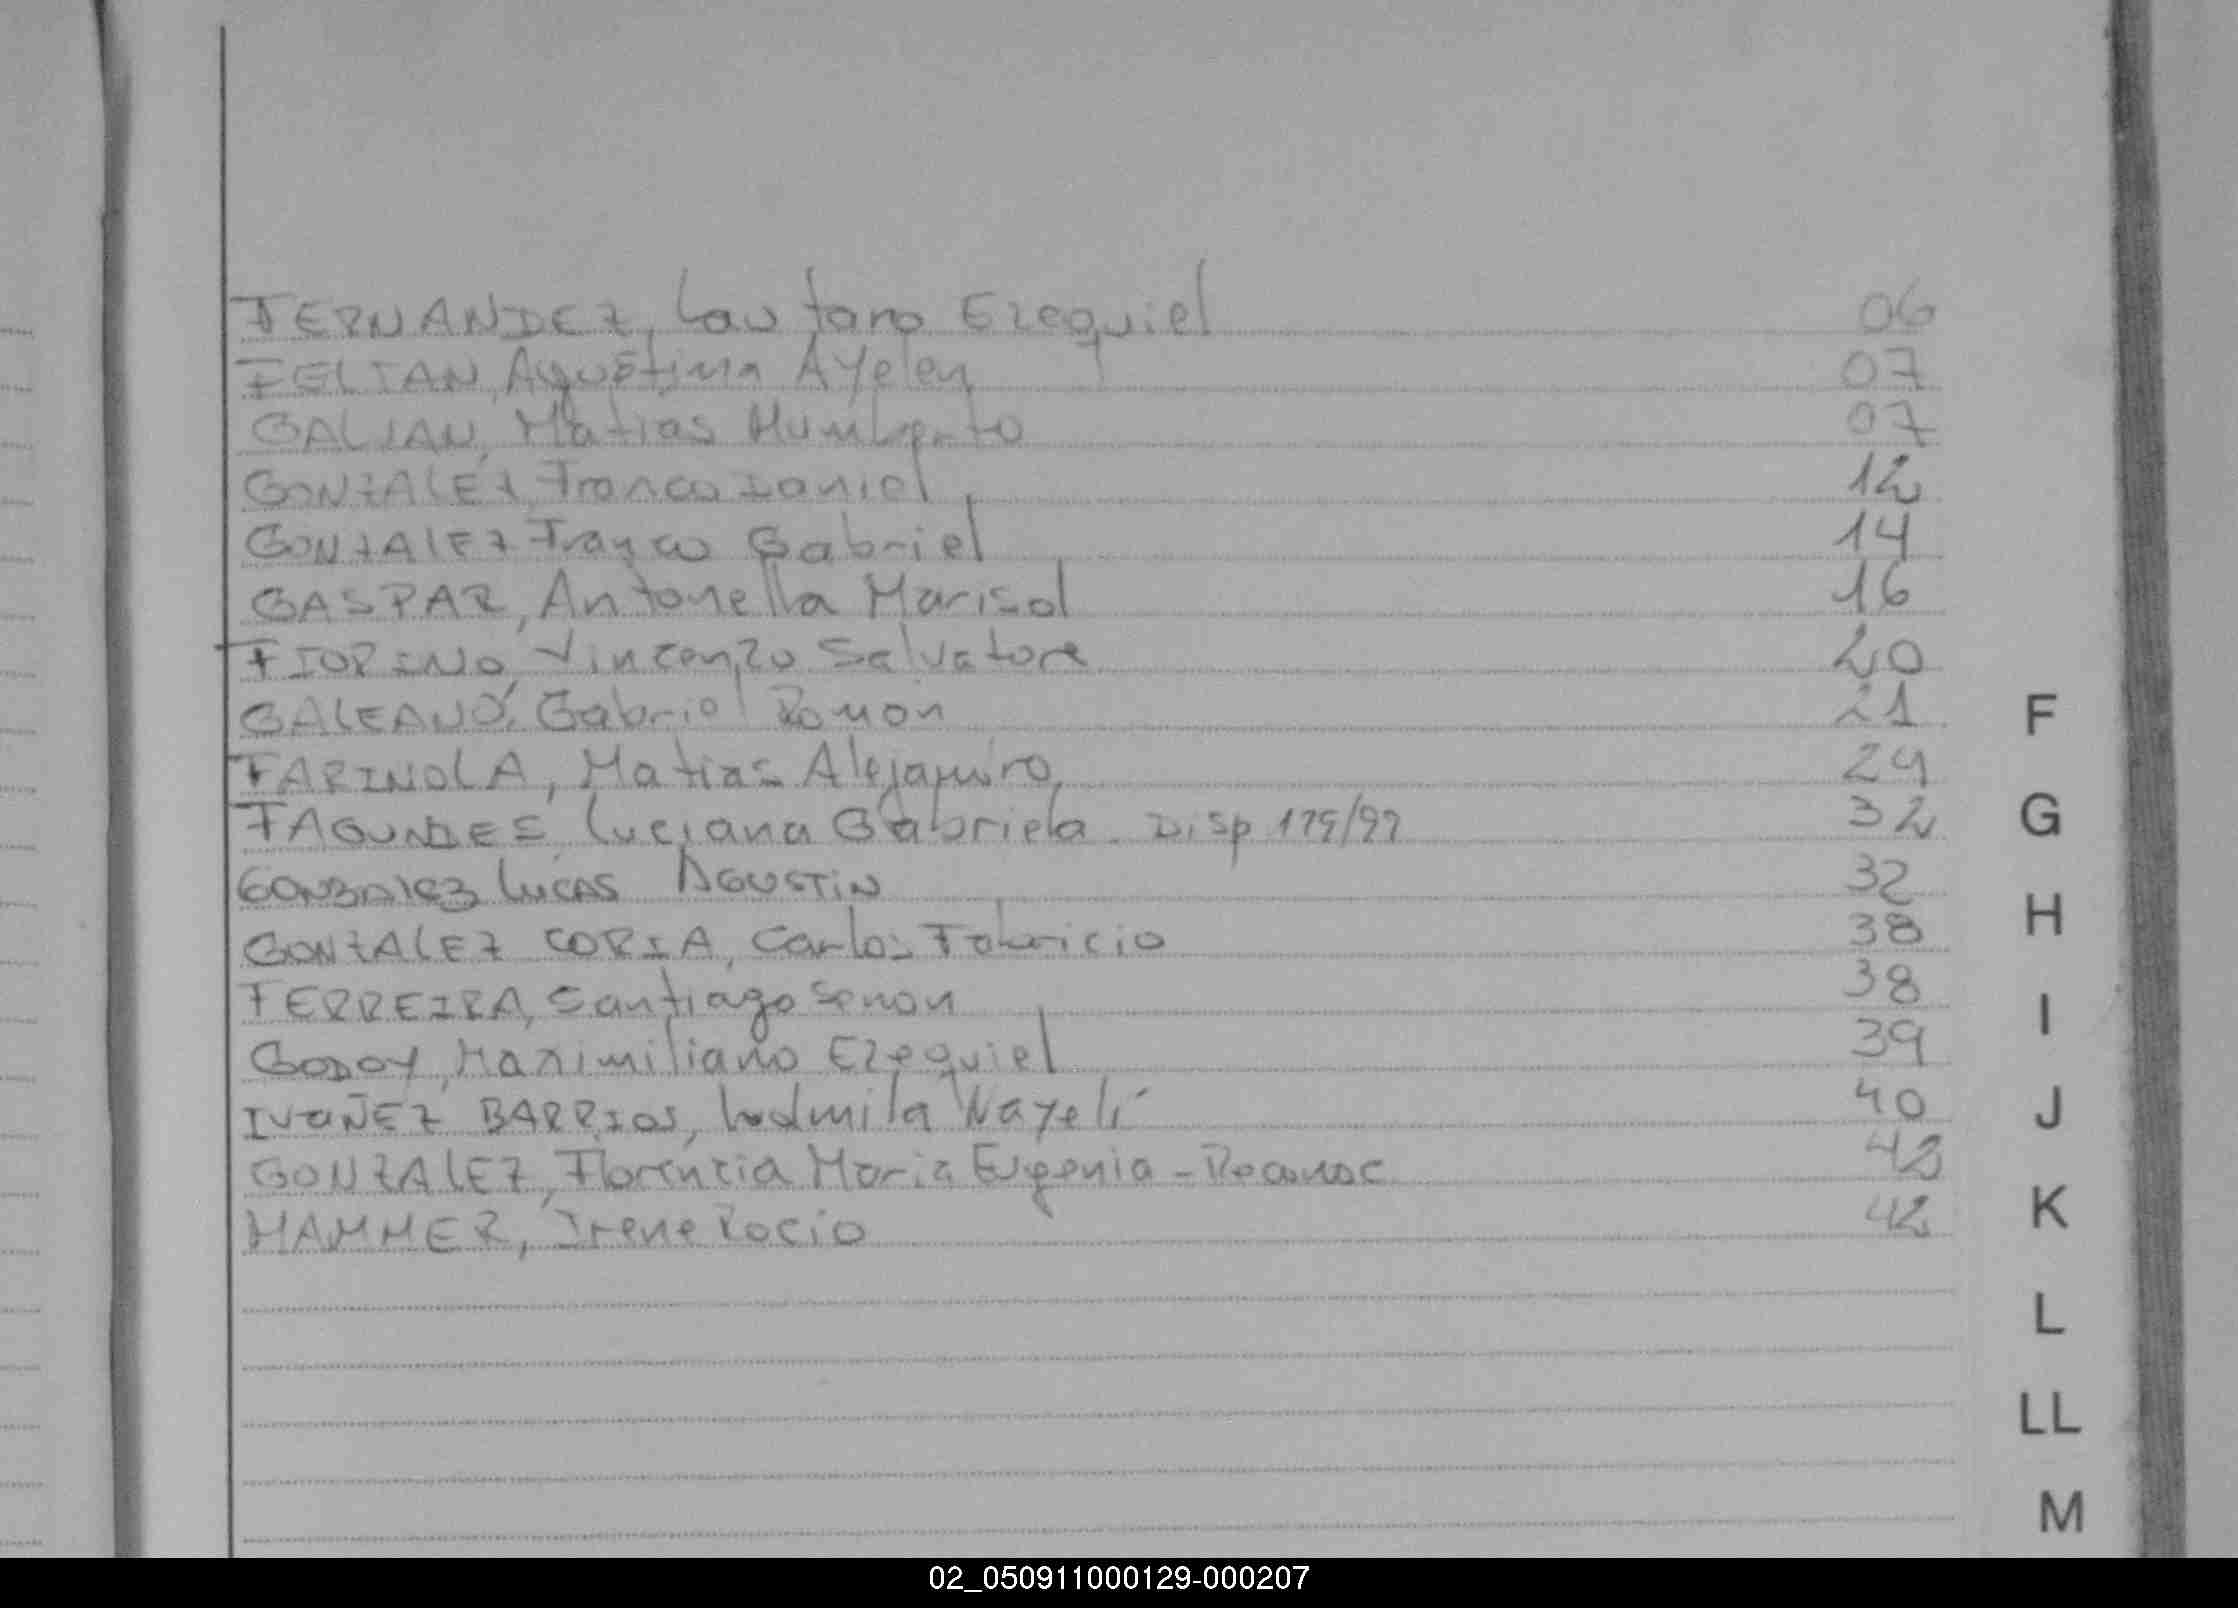 FERNANDEZ, Lautaro Ezequiel 06
FELTAN, Agustina Ayelen 07
GALIAN, Matias Humberto 07
GONZALEZ, Franco Daniel 12
GONZALEZ Franco Gabriel 14
GASPAR, Antonella Marisol 16
FIORINO, Vincenzo Salvatore 20
GALEANO, Gabriel Ramon 21
FARINOLA, Matias Alejandro, 29
FAGUNDES, Luciana Gabriela. Disp 179/97 32
GONZALEZ LUCAS AGUSTIN 32
GONZALEZ CORIA, Carlos Fabricio 38
FERREIRA, Santiago 38
GODOY, Maximiliano Ezequiel 39
BARRIOS, Ludmila Nayelí 40
GONZALEZ, Florencia Maria Eugenia - 42
HAMMER, Irene Rocio 42
F
G
H
I
J
K
L
LL
M
02_050911000129-000207